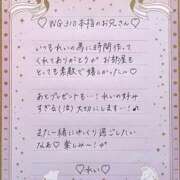 ♡ NG310本指のお兄さん♡
いつもれいの為に時間作って
くれてありがとう お部屋も
とっても素敵で嬉しかった♡
あとプレゼントも…！れいの好み
すぎる(泣) 大切にします…！
また一緒にゆっくり過ごしたい
なっ♡ 楽しみー！
♡れい♡